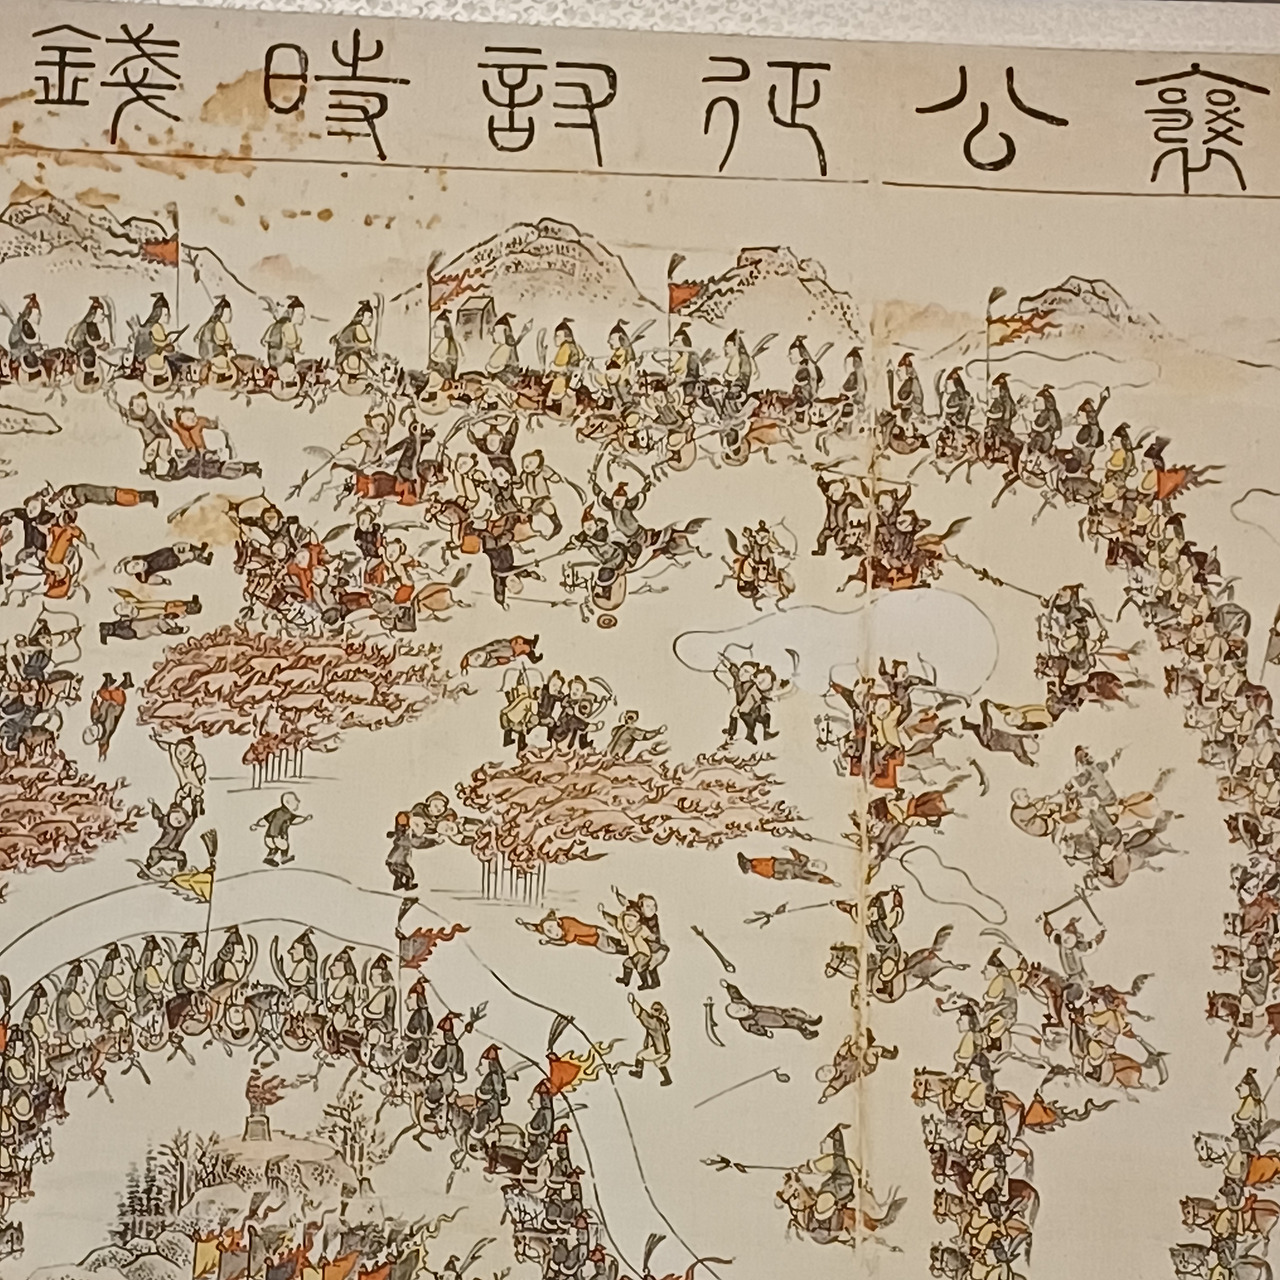 襄公征討時錢